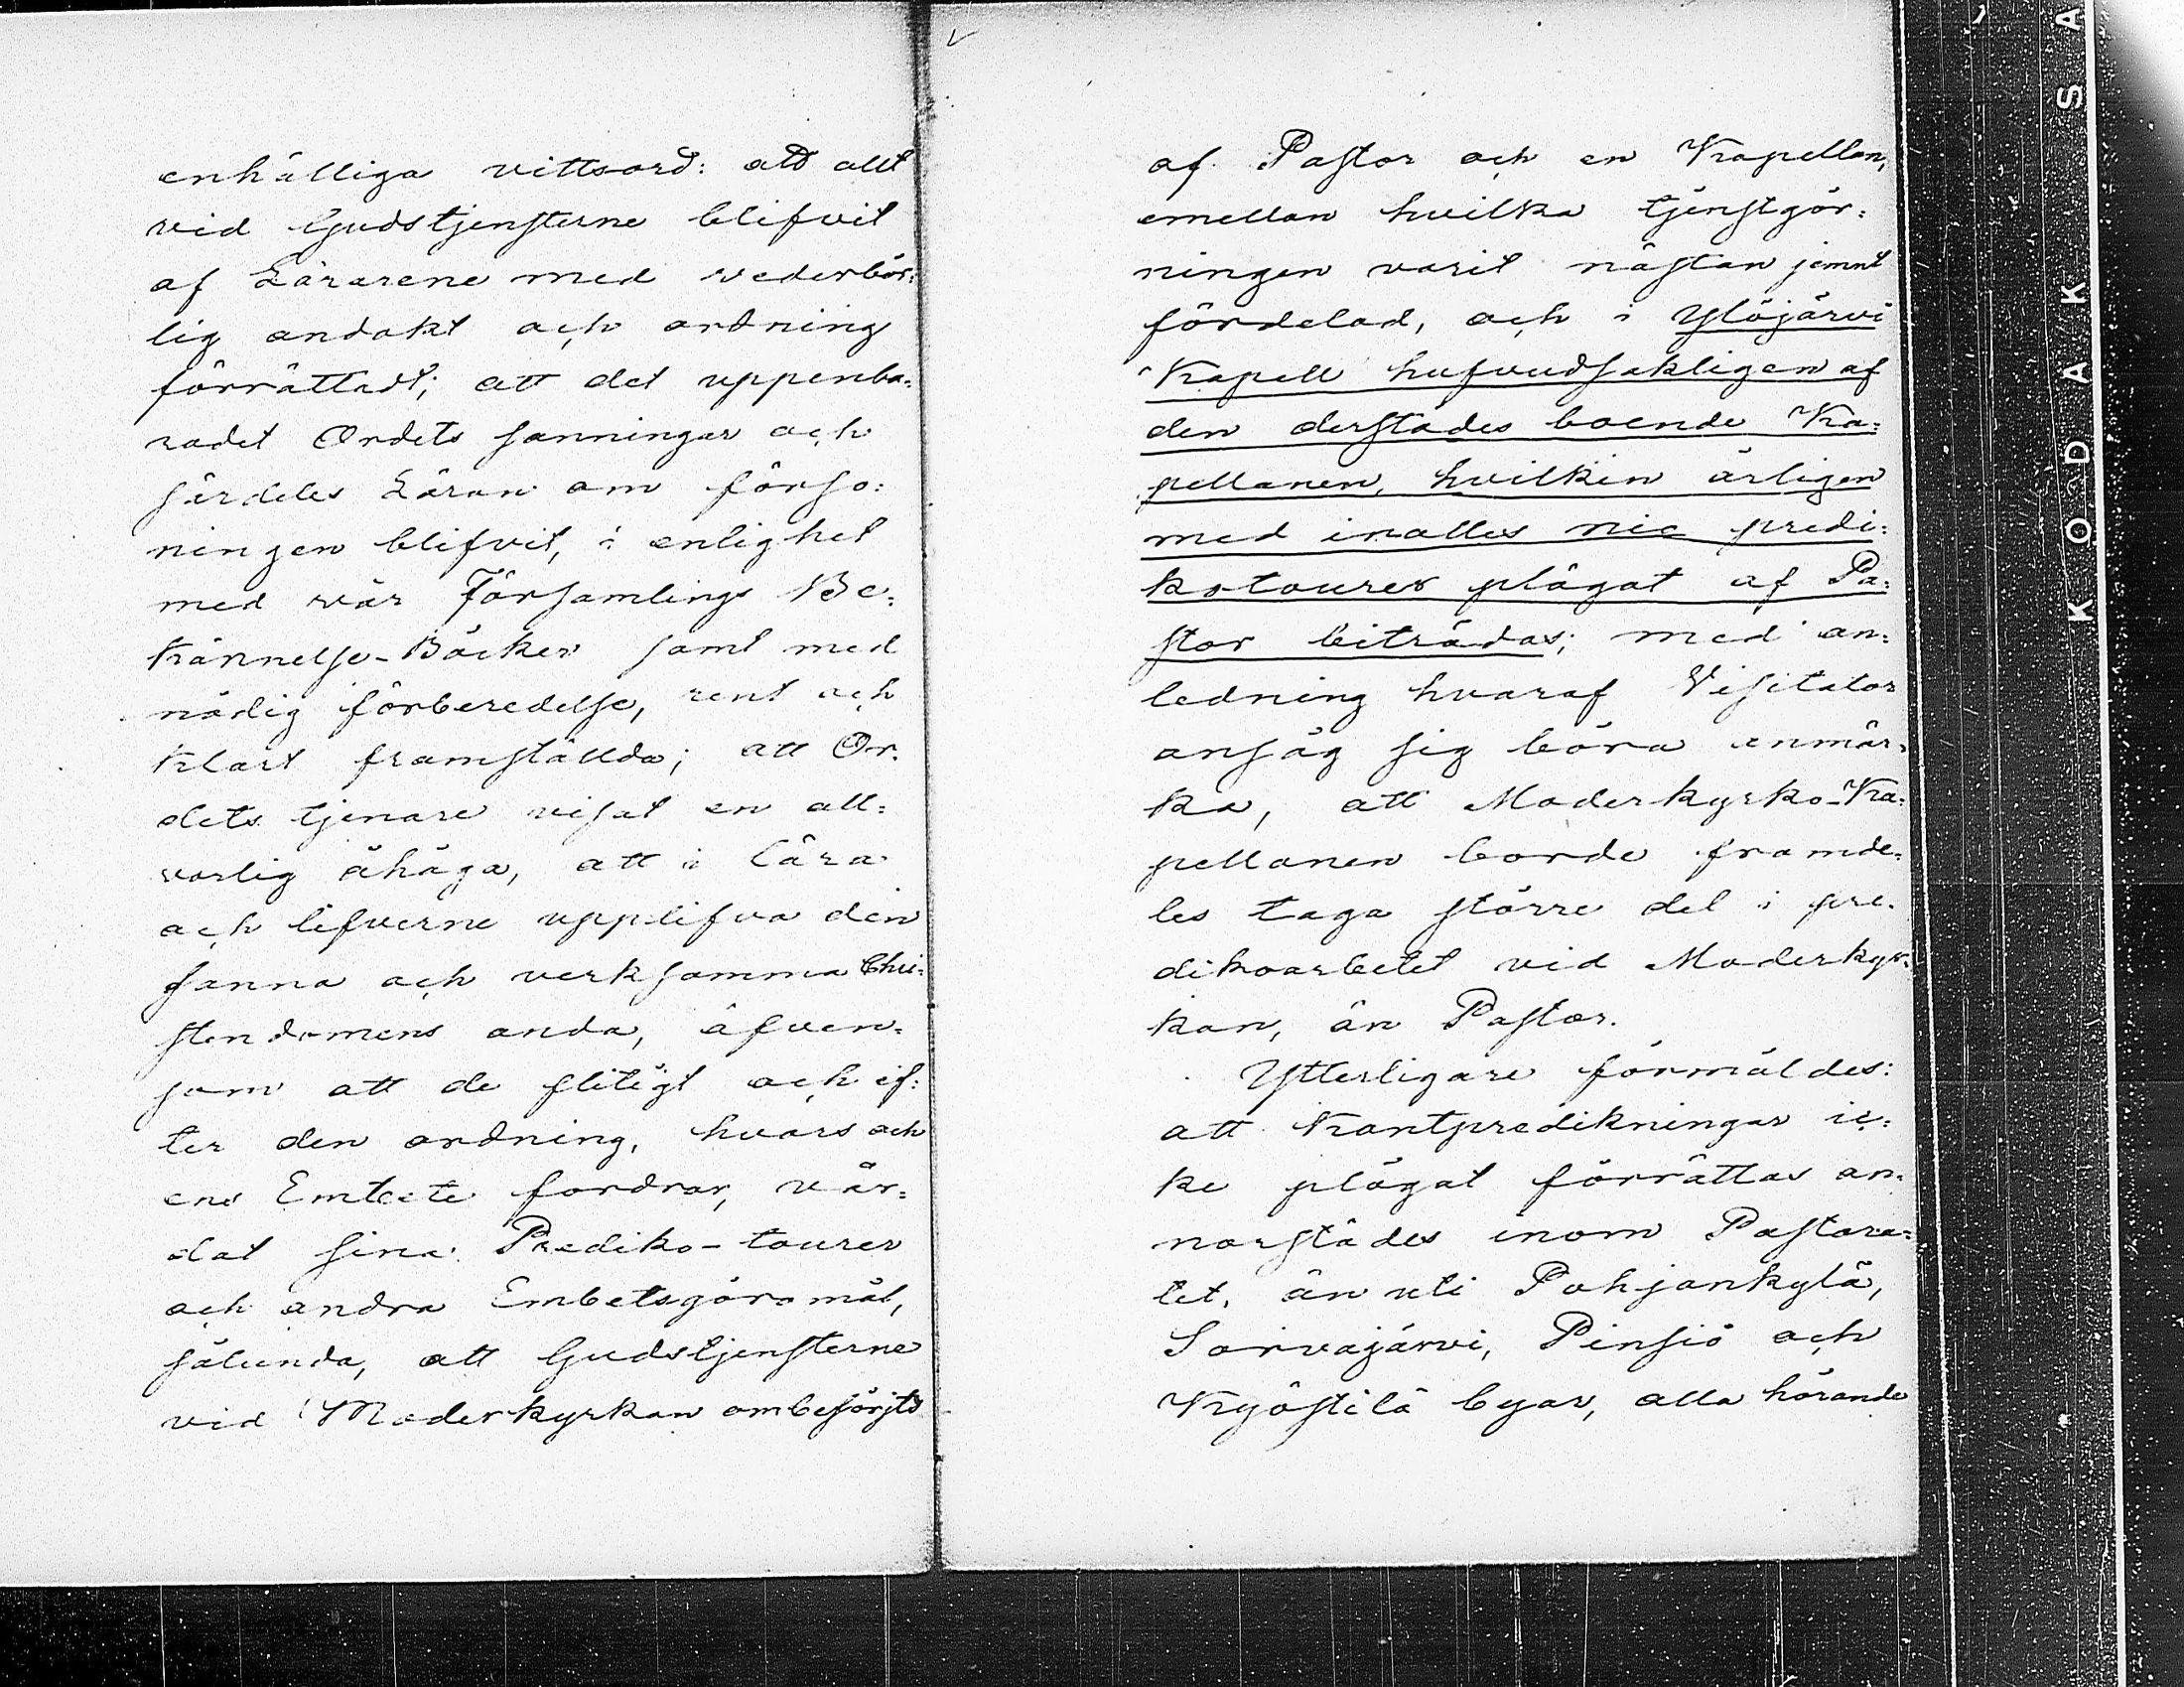 enhälliga vittsord: att allt
vid Gudstjensterne blifvit
af Lärarene med vederbör:
lig andakt och ordning
förrättadt; att det uppenba:
radet Ordets sanningar och
särdeles Läran om förso:
ningen blifvit, i enlighet
med vår Församlings Be:
kännelse-Böcker samt med
nödig förberedelse, rent och
klart framställda; att Or:
dets tjenare visat en all:
varlig åhåga, att i lära
och lefverne upplifva den
sanna och verksamma Chri:
stendomens anda, äfven:
som att de flitigt och ef:
ter den ordning, hvars och
ens Embete fordrar, vår:
dat sina Prediko-tourer
och andra Embetsgöromål,
sålunda, att Gudstjensterne
vid Moderkyrkan ombesörjts
af Pastor och en Kapellan,
emellan hvilka tjenstgör:
ningen varit nästan jemnt
fördelad, och i Ylöjärvi
Kapell hufvudsakligen af
den derstädes boende Ka:
pellanen, hvilken årligen
med inalles nie predi:
kotourer plägat af Pa:
stor biträdas; med an:
ledning hvaraf Visitator
ansåg sig böra anmär:
ka, att Moderkyrko-Ka:
pellanen borde framde:
les taga större del i pre:
dikoarbetet vid Moderkyr:
kan, än Pastor.
Ytterligare förmäldes:
att Kantpredikningar ic:
ke plägat förrättas an:
norstädes inom Pastora:
tet, än uti Pohjankylä,
Sarvajärvi, Pinsiö och
Kyöstilä byar, alla hörande
KODAK SA